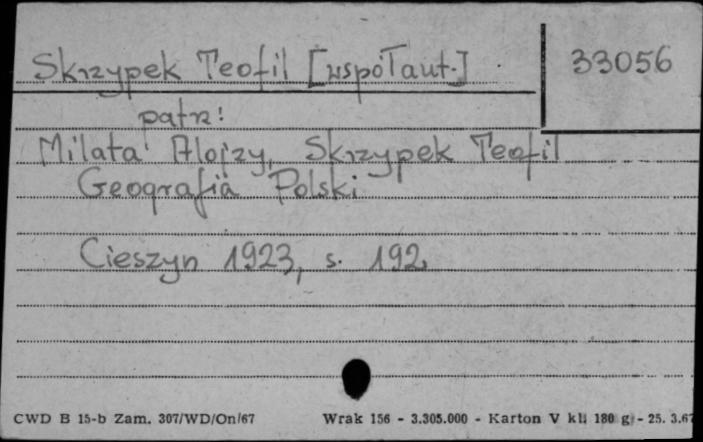 Skrzypek Teofil [współaut.]
33056
patrz:
Milata Alojzy, Skrzypek Teofil
Geografia Polski
Cieszyn 1923, s. 192
CWD B 15-b Zam. 307/WD/On/67 Wrak 156 - 3.305.000 - Karton V kl. 180 g - 25. 3.67